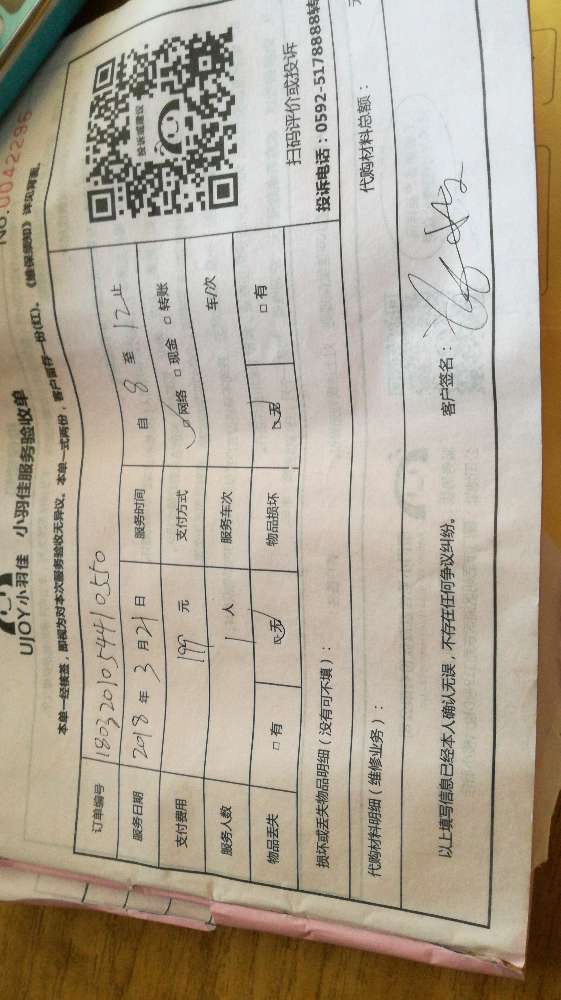 No.0042296
UJOY小羽佳 小羽佳服务验收单
本单一经核签,即视为对本次服务验收无异议。本单一式两份,客户留存一份(红)。《维保须知》详见背面。
订单编号 180320105441055０
服务日期 2018 年 3 月 21 日 服务时间 自 8 至 12 止
支付费用 199 元 支付方式 ☑网络 □现金 □转账
服务人数 1 人 服务车次 车/次
物品丢失 □有 ☑无 物品损坏 ☑无 □有
投诉或建议
扫码评价或投诉
投诉电话:0592-5178888转
损坏或丢失物品明细(没有可不填):
代购材料明细(维修业务): 代购材料总额: 元
以上填写信息已经本人确认无误,不存在任何争议纠纷。 客户签名: